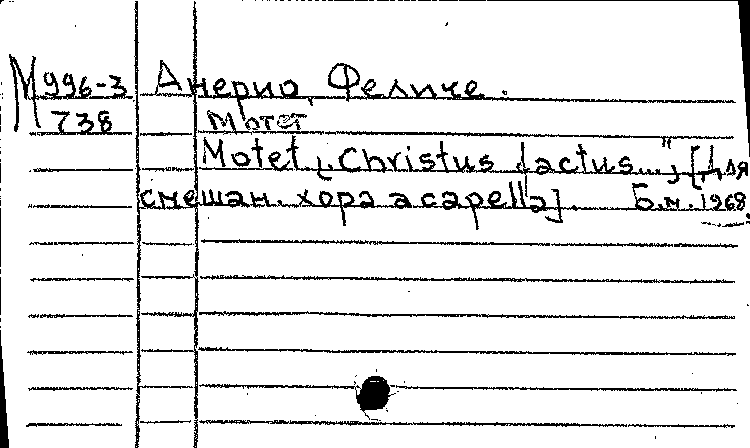 М 996-3 Анерио, Феличе.
738 Мотет
Motet „Christus factus...", [Для
смешан. хора a capella]. Б.м. 1968.